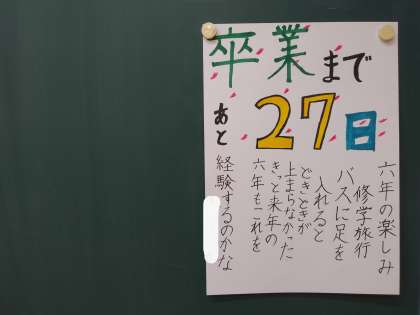 卒業まで
あと
27日
六年の楽しみ
修学旅行
バスに足を
入れると
どきどきが
止まらなかった
きっと来年の
六年もこれを
経験するのかな